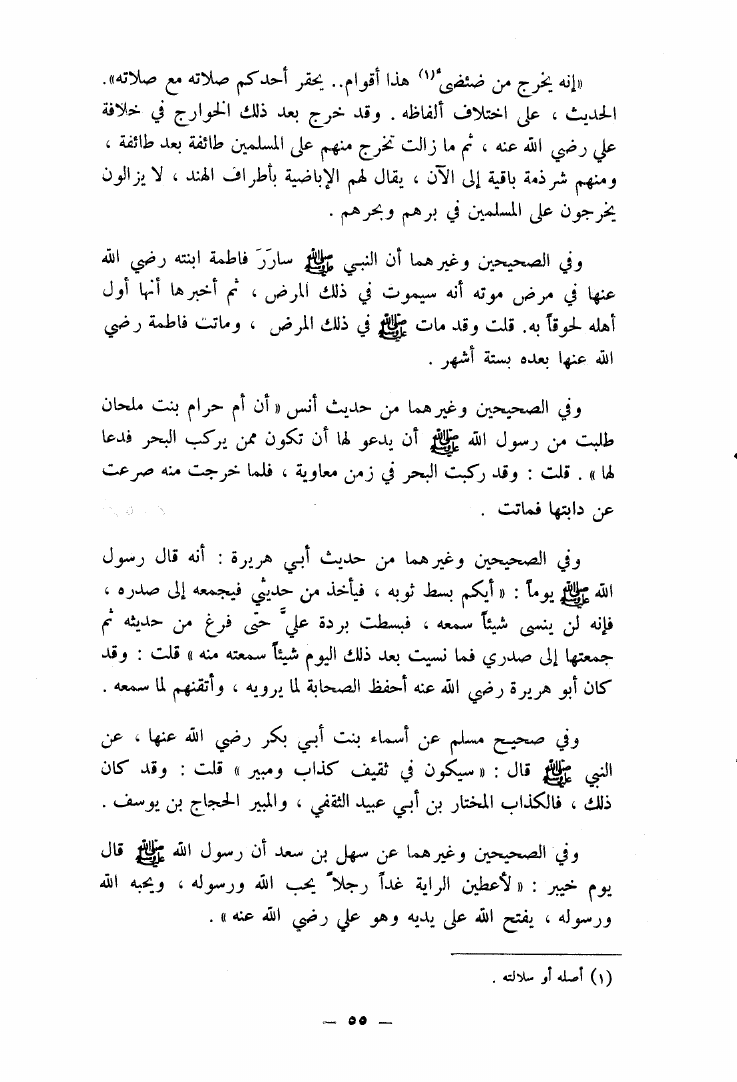 «إنه يخرج من ضئضىء(١) هذا أقوام.. يحقر أحدكم صلاته مع صلاته».
الحديث ، على اختلاف ألفاظه . وقد خرج بعد ذلك الخوارج في خلافة
علي رضي الله عنه ، ثم ما زالت تخرج منهم على المسلمين طائفة بعد طائفة ،
ومنهم شرذمة باقية إلى الآن ، يقال لهم الإباضية بأطراف الهند ، لا يزالون
يخرجون على المسلمين في برهم وبحرهم .
وفي الصحيحين وغيرهما أن النبي ﷺ سارَرَ فاطمة ابنته رضي الله
عنها في مرض موته أنه سيموت في ذلك المرض ، ثم أخبرها أنها أول
أهله لحوقاً به. قلت وقد مات ﷺ في ذلك المرض ، وماتت فاطمة رضي
الله عنها بعده بستة أشهر .
وفي الصحيحين وغيرهما من حديث أنس «أن أم حرام بنت ملحان
طلبت من رسول الله ﷺ أن يدعو لها أن تكون ممن يركب البحر فدعا
لها» . قلت : وقد ركبت البحر في زمن معاوية ، فلما خرجت منه صرعت
عن دابتها فماتت .
وفي الصحيحين وغيرهما من حديث أبي هريرة : أنه قال رسول
الله ﷺ يوماً : «أيكم بسط ثوبه ، فيأخذ من حديثي فيجمعه إلى صدره ،
فإنه لن ينسى شيئاً سمعه ، فبسطت بردة عليَّ حتى فرغ من حديثه ثم
جمعتها إلى صدري فما نسيت بعد ذلك اليوم شيئاً سمعته منه» قلت : وقد
كان أبو هريرة رضي الله عنه أحفظ الصحابة لما يرويه ، وأتقنهم لما سمعه .
وفي صحيح مسلم عن أسماء بنت أبي بكر رضي الله عنها ، عن
النبي ﷺ قال : «سيكون في ثقيف كذاب ومبير» قلت : وقد كان
ذلك ، فالكذاب المختار بن أبي عبيد الثقفي ، والمبير الحجاج بن يوسف .
وفي الصحيحين وغيرهما عن سهل بن سعد أن رسول الله ﷺ قال
يوم خيبر : «لأعطين الراية غداً رجلاً يحب الله ورسوله ، ويحبه الله
ورسوله ، يفتح الله على يديه وهو علي رضي الله عنه» .
(١) أصله أو سلالته .
— ٥٥ —